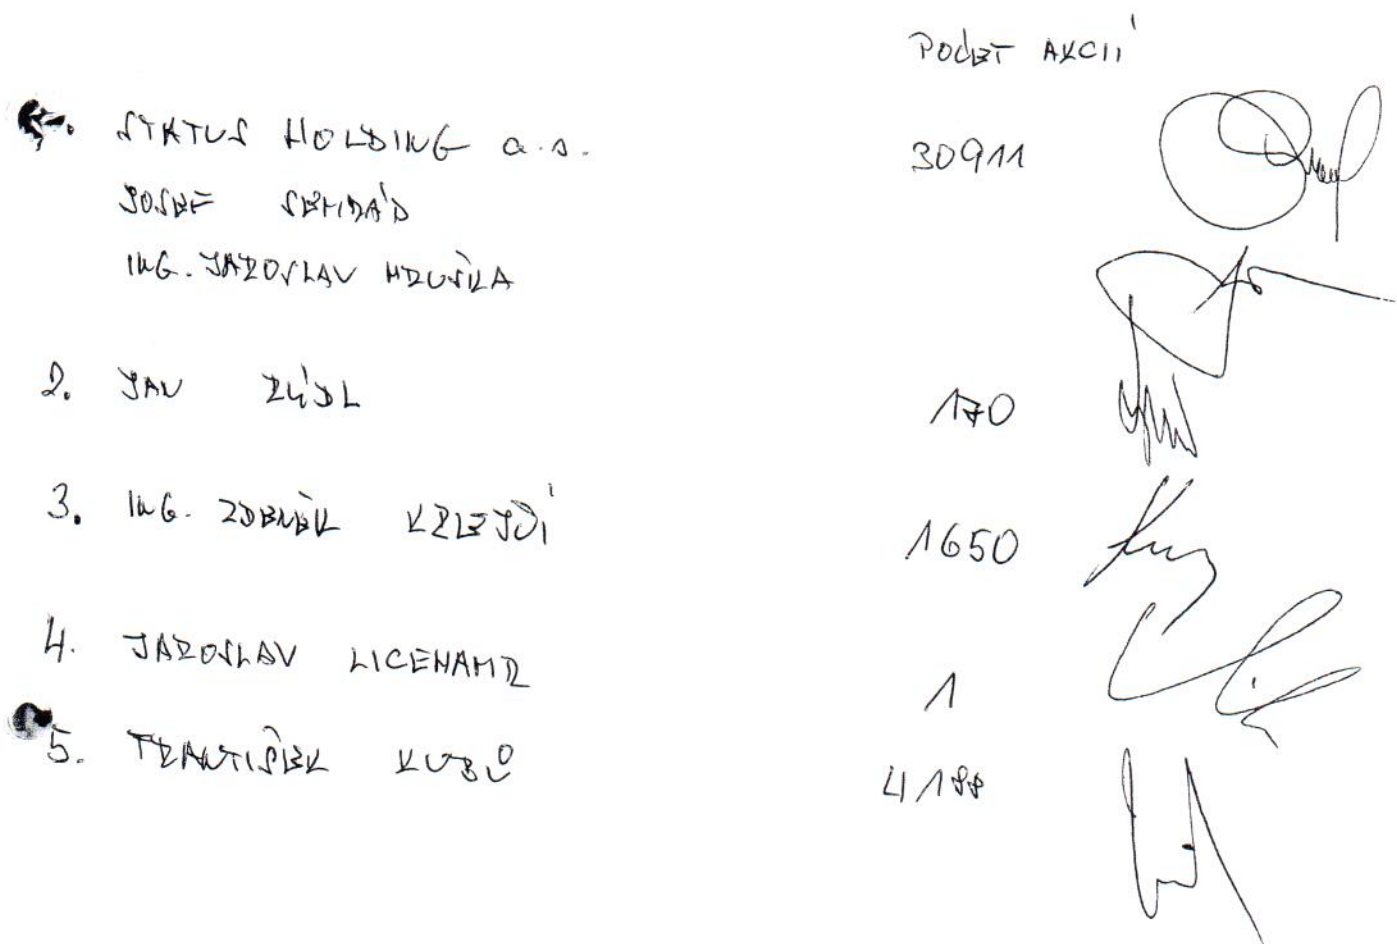 POČET AKCIÍ
1. STATUS HOLDING a.s. 30911
JOSEF SEHRÁD
ING. JAROSLAV HRUŠKA
2. JAN 170
3. ING. ZDENĚK KREJČÍ 1650
4. JAROSLAV LICEHAMR 1
5. FRANTIŠEK KUBŮ 4188